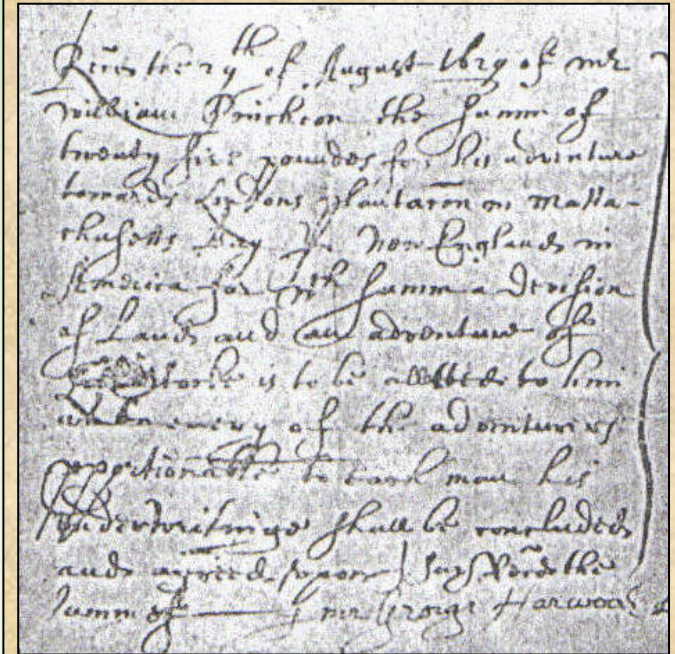 the 29th of August 1629 of mr
william Pinchon the summ of
twenty five poundes for his adventure
towards plantacon in Massa-
chusetts Bay in New Englande in
America for wch summ a devision
of Lande and an adventure of
Stocke is to be allotted to him
when every of the adventurers
to each man his
underwritinge shall be concluded
and agreed uppon I say the
summ of mr George Harwood